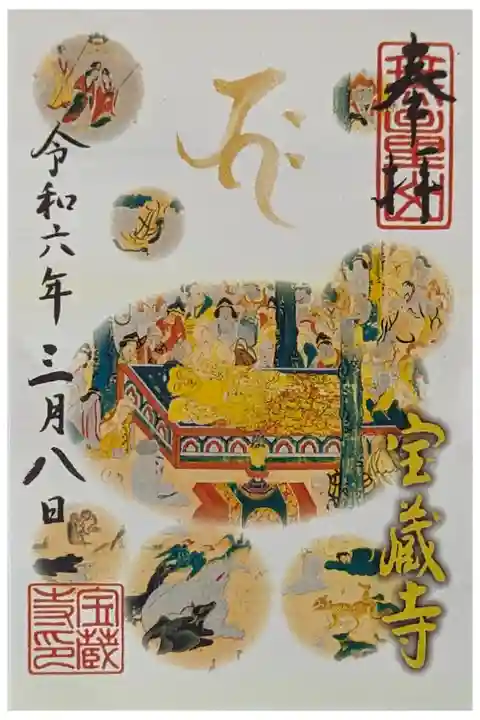 奉拝
宝蔵寺
令和六年三月八日
宝蔵
寺印